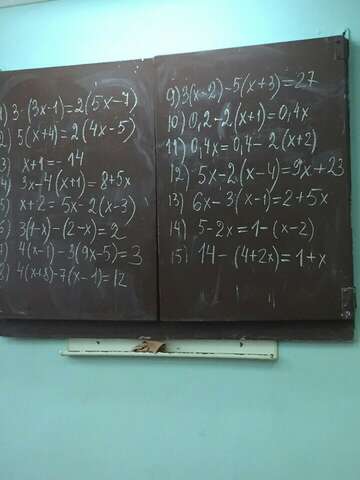 1) 3-(3x-1)=2(5x-7)
2) 5(x+4)=2(4x-5)
3) x+1=-14
4) 3x-4(x+1)=8+5x
5) x+2=5x-2(x-3)
6) 3(1-x)-(2-x)=2
7) 4(x-1)-3(9x-5)=3
8) 4(x+8)-7(x-1)=12
9) 3(x-2)-5(x+3)=27
10) 0,2-2(x+1)=0,4x
11) 0,4x=0,4-2(x+2)
12) 5x-2(x-4)=9x+23
13) 6x-3(x-1)=2+5x
14) 5-2x=1-(x-2)
15) 14-(4+2x)=1+x